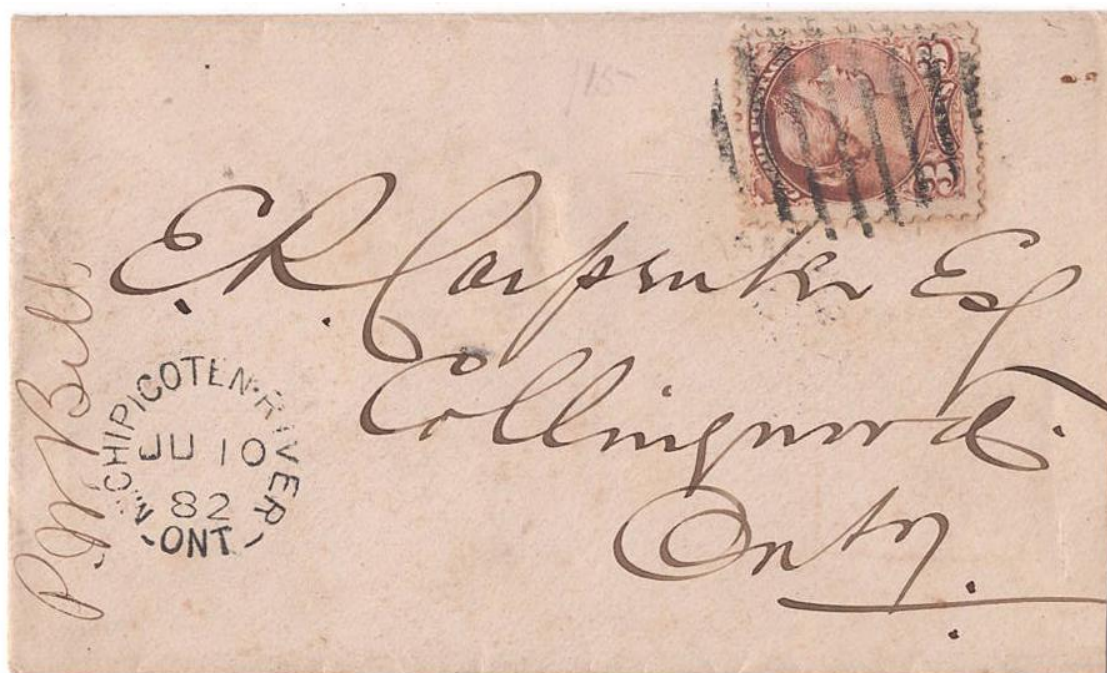 E. R. Carpenter Esq
Collingwood.
Onty.
MICHIPICOTEN-RIVER
JU 10
82
ONT
3 3